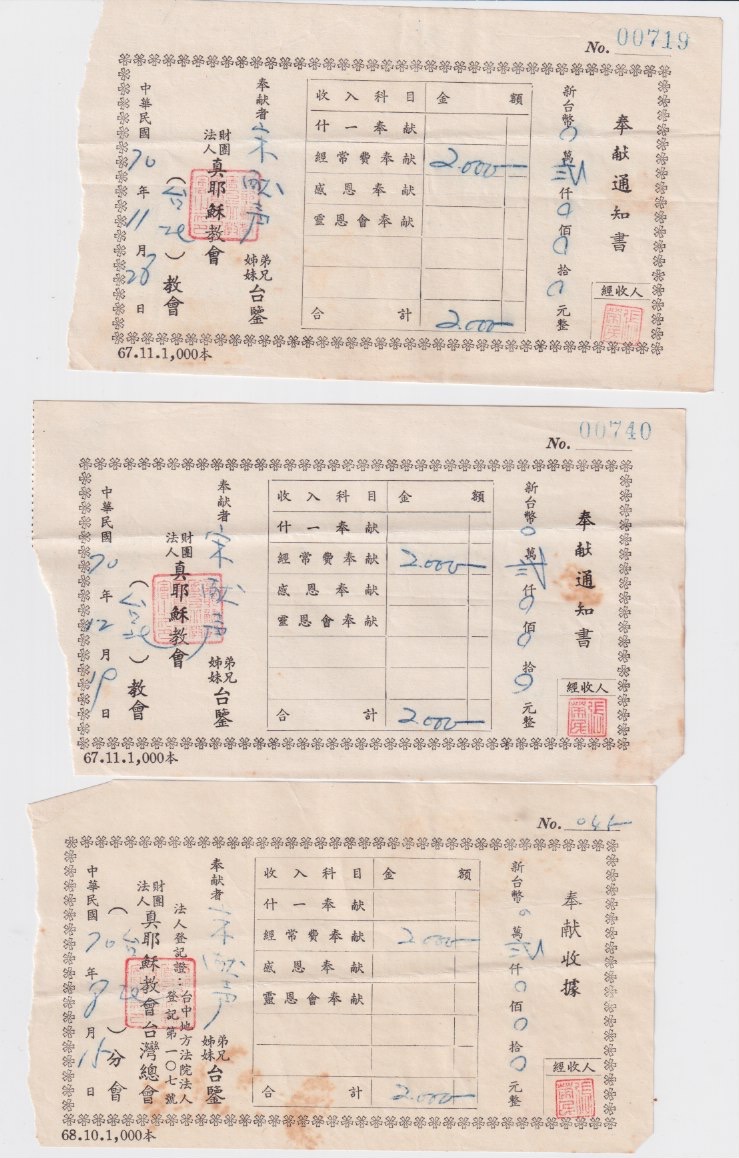 No. 00719
奉献通知書
新台幣0萬貳仟0佰0拾0元整
經收人
收入科目 金額
什一奉献
經常費奉献 2.000
感恩奉献
靈恩會奉献
合計 2.000
奉献者 宋 声 弟兄姊妹 台鑒
財團法人 真耶穌教會
(台北)教會
中華民國70年11月28日
67.11.1,000本
No. 00740
奉献通知書
新台幣0萬貳仟0佰0拾0元整
經收人
收入科目 金額
什一奉献
經常費奉献 2.000
感恩奉献
靈恩會奉献
合計 2.000
奉献者 宋 声 弟兄姊妹 台鑒
財團法人 真耶穌教會
(台北)教會
中華民國70年12月19日
67.11.1,000本
No. 045
奉献收據
新台幣0萬貳仟0佰0拾0元整
經收人
收入科目 金額
什一奉献
經常費奉献 2.000
感恩奉献
靈恩會奉献
合計 2.000
奉献者 宋 声 弟兄姊妹 台鑒
法人登記證:台中地方法院法人
登記第一〇七號
財團法人 真耶穌教會台灣總會
(台北)分會
中華民國70年8月15日
68.10.1,000本